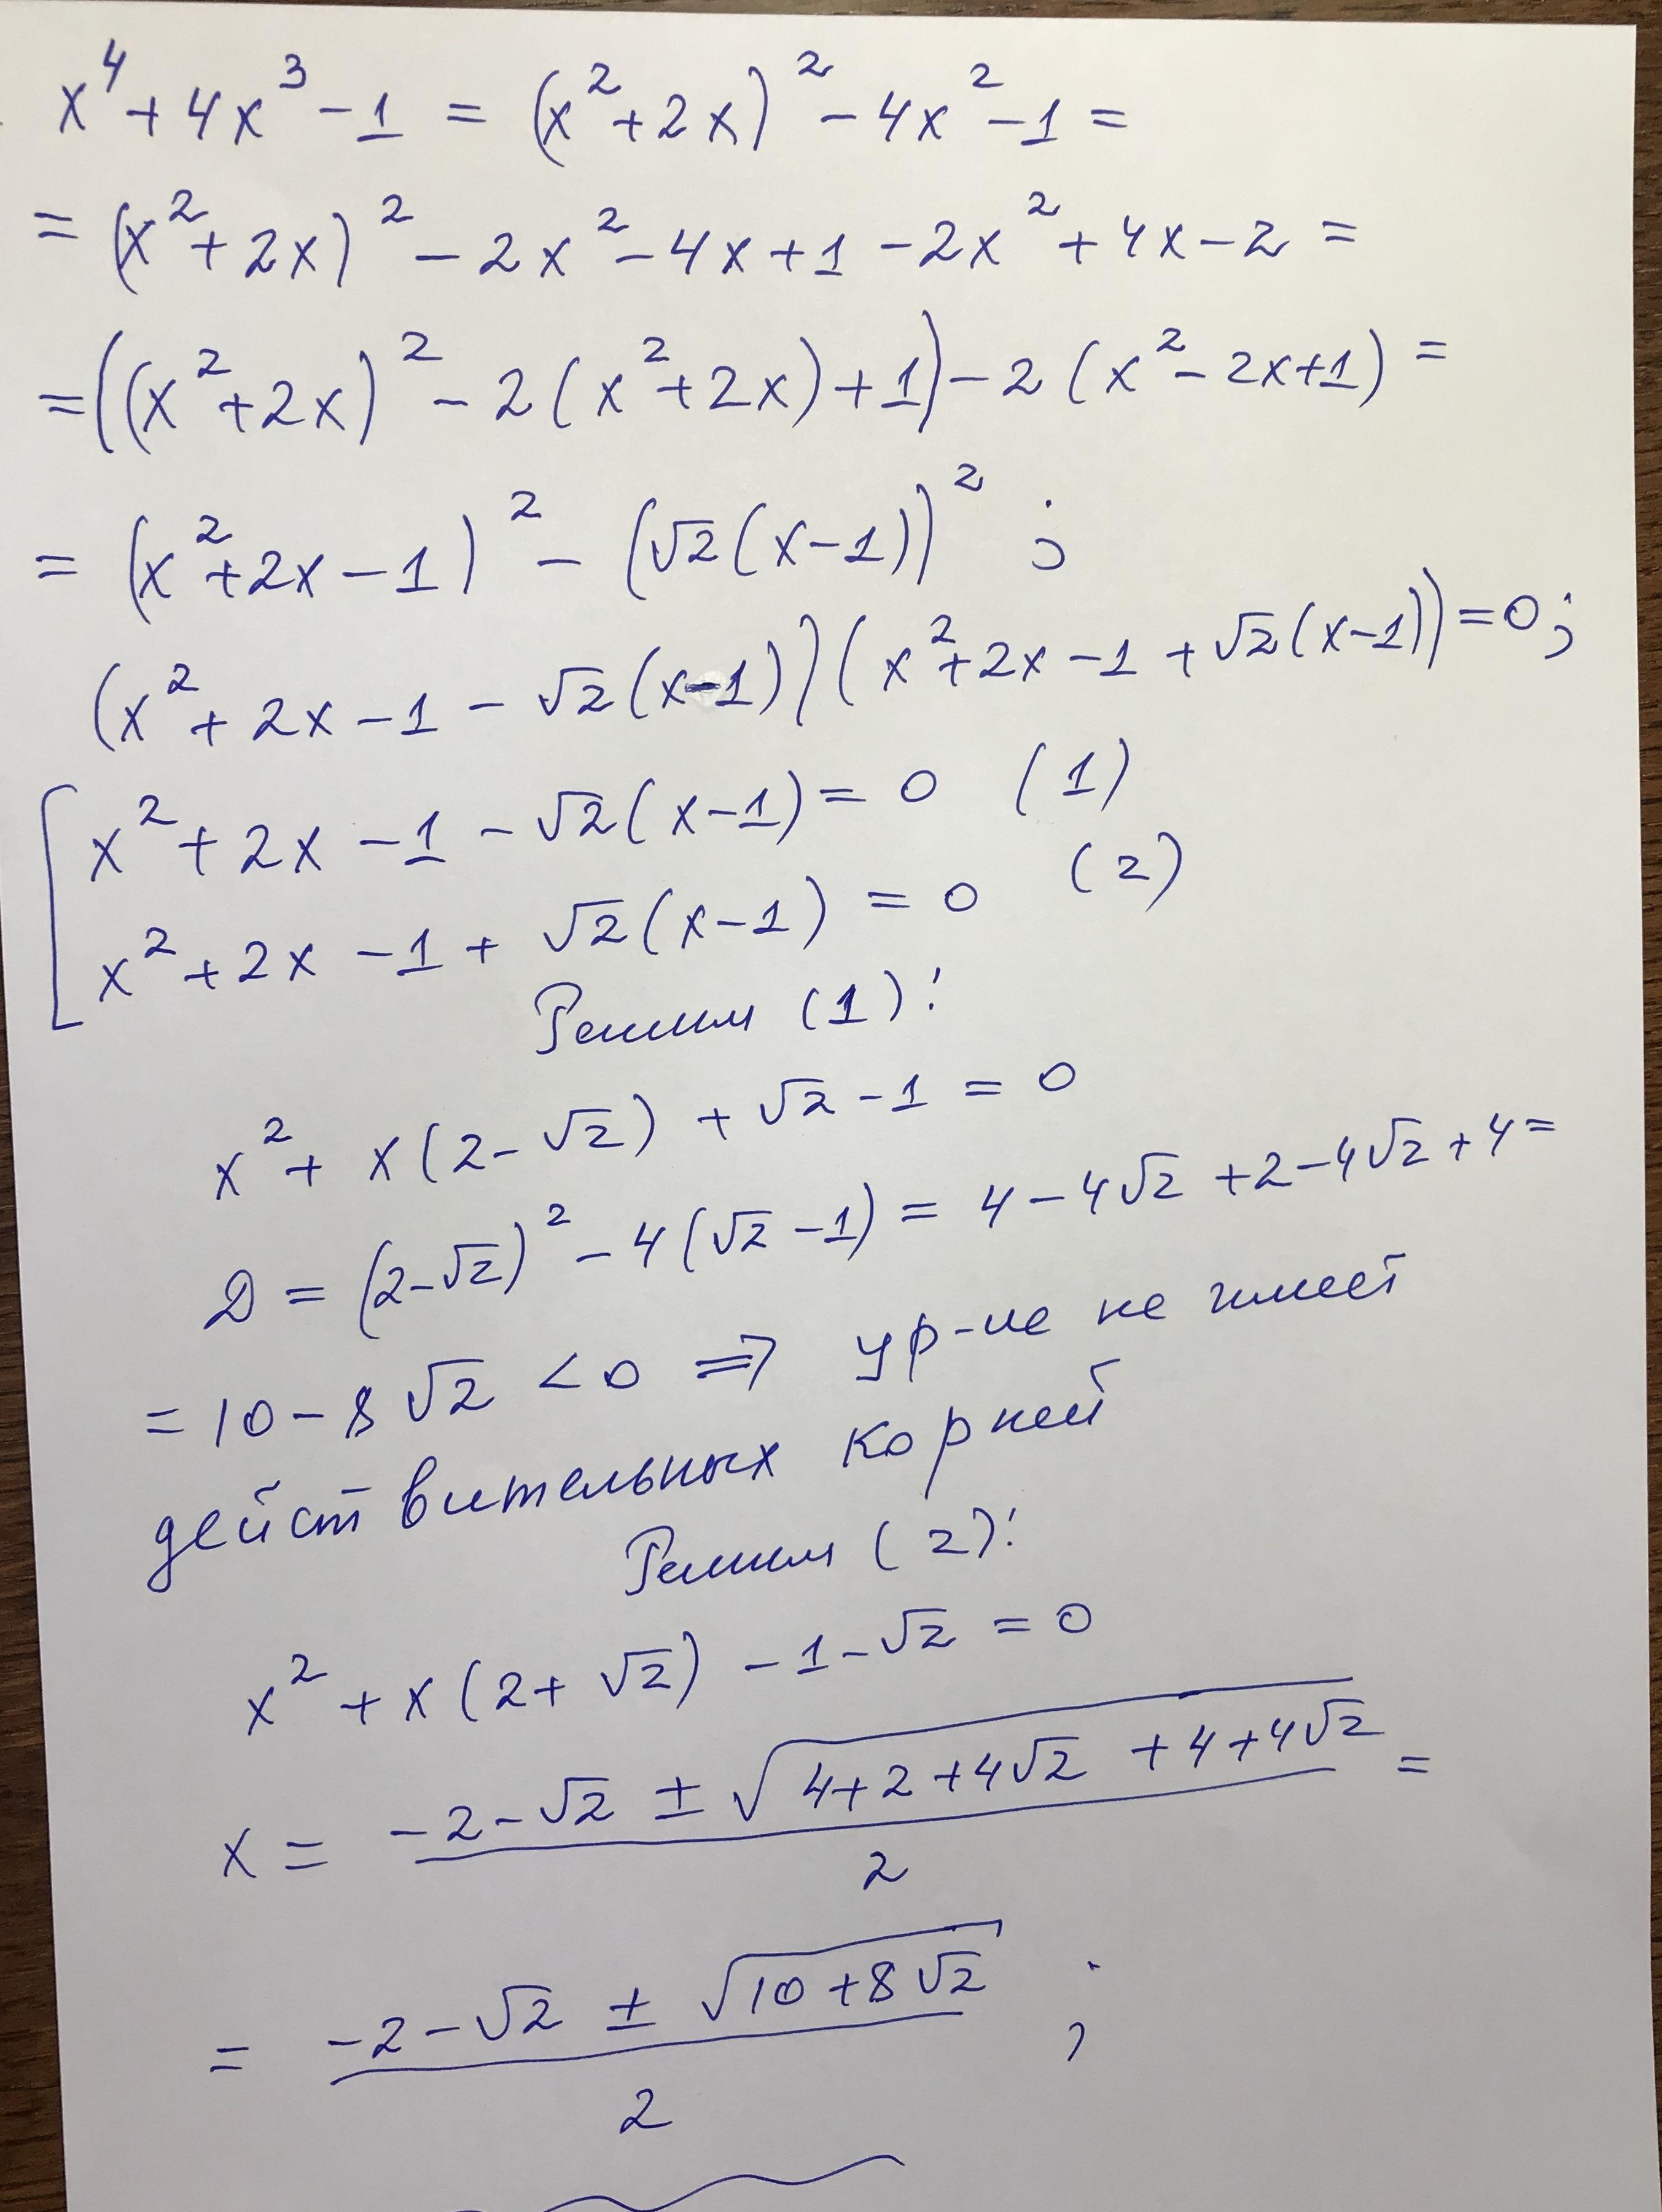 x⁴ + 4x³ - 1 = (x² + 2x)² - 4x² - 1 =
= (x² + 2x)² - 2x² - 4x + 1 - 2x² + 4x - 2 =
= ((x² + 2x)² - 2(x² + 2x) + 1) - 2(x² - 2x + 1) =
= (x² + 2x - 1)² - (√2(x - 1))² ;
(x² + 2x - 1 - √2(x - 1))(x² + 2x - 1 + √2(x - 1)) = 0;
x² + 2x - 1 - √2(x - 1) = 0 (1)
x² + 2x - 1 + √2(x - 1) = 0 (2)
Решим (1):
x² + x(2 - √2) + √2 - 1 = 0
D = (2 - √2)² - 4(√2 - 1) = 4 - 4√2 + 2 - 4√2 + 4 =
= 10 - 8√2 < 0 ⇒ ур-ие не имеет
действительных корней
Решим (2):
x² + x(2 + √2) - 1 - √2 = 0
x = (-2 - √2 ± √(4 + 2 + 4√2 + 4 + 4√2)) / 2 =
= (-2 - √2 ± √(10 + 8√2)) / 2 ;